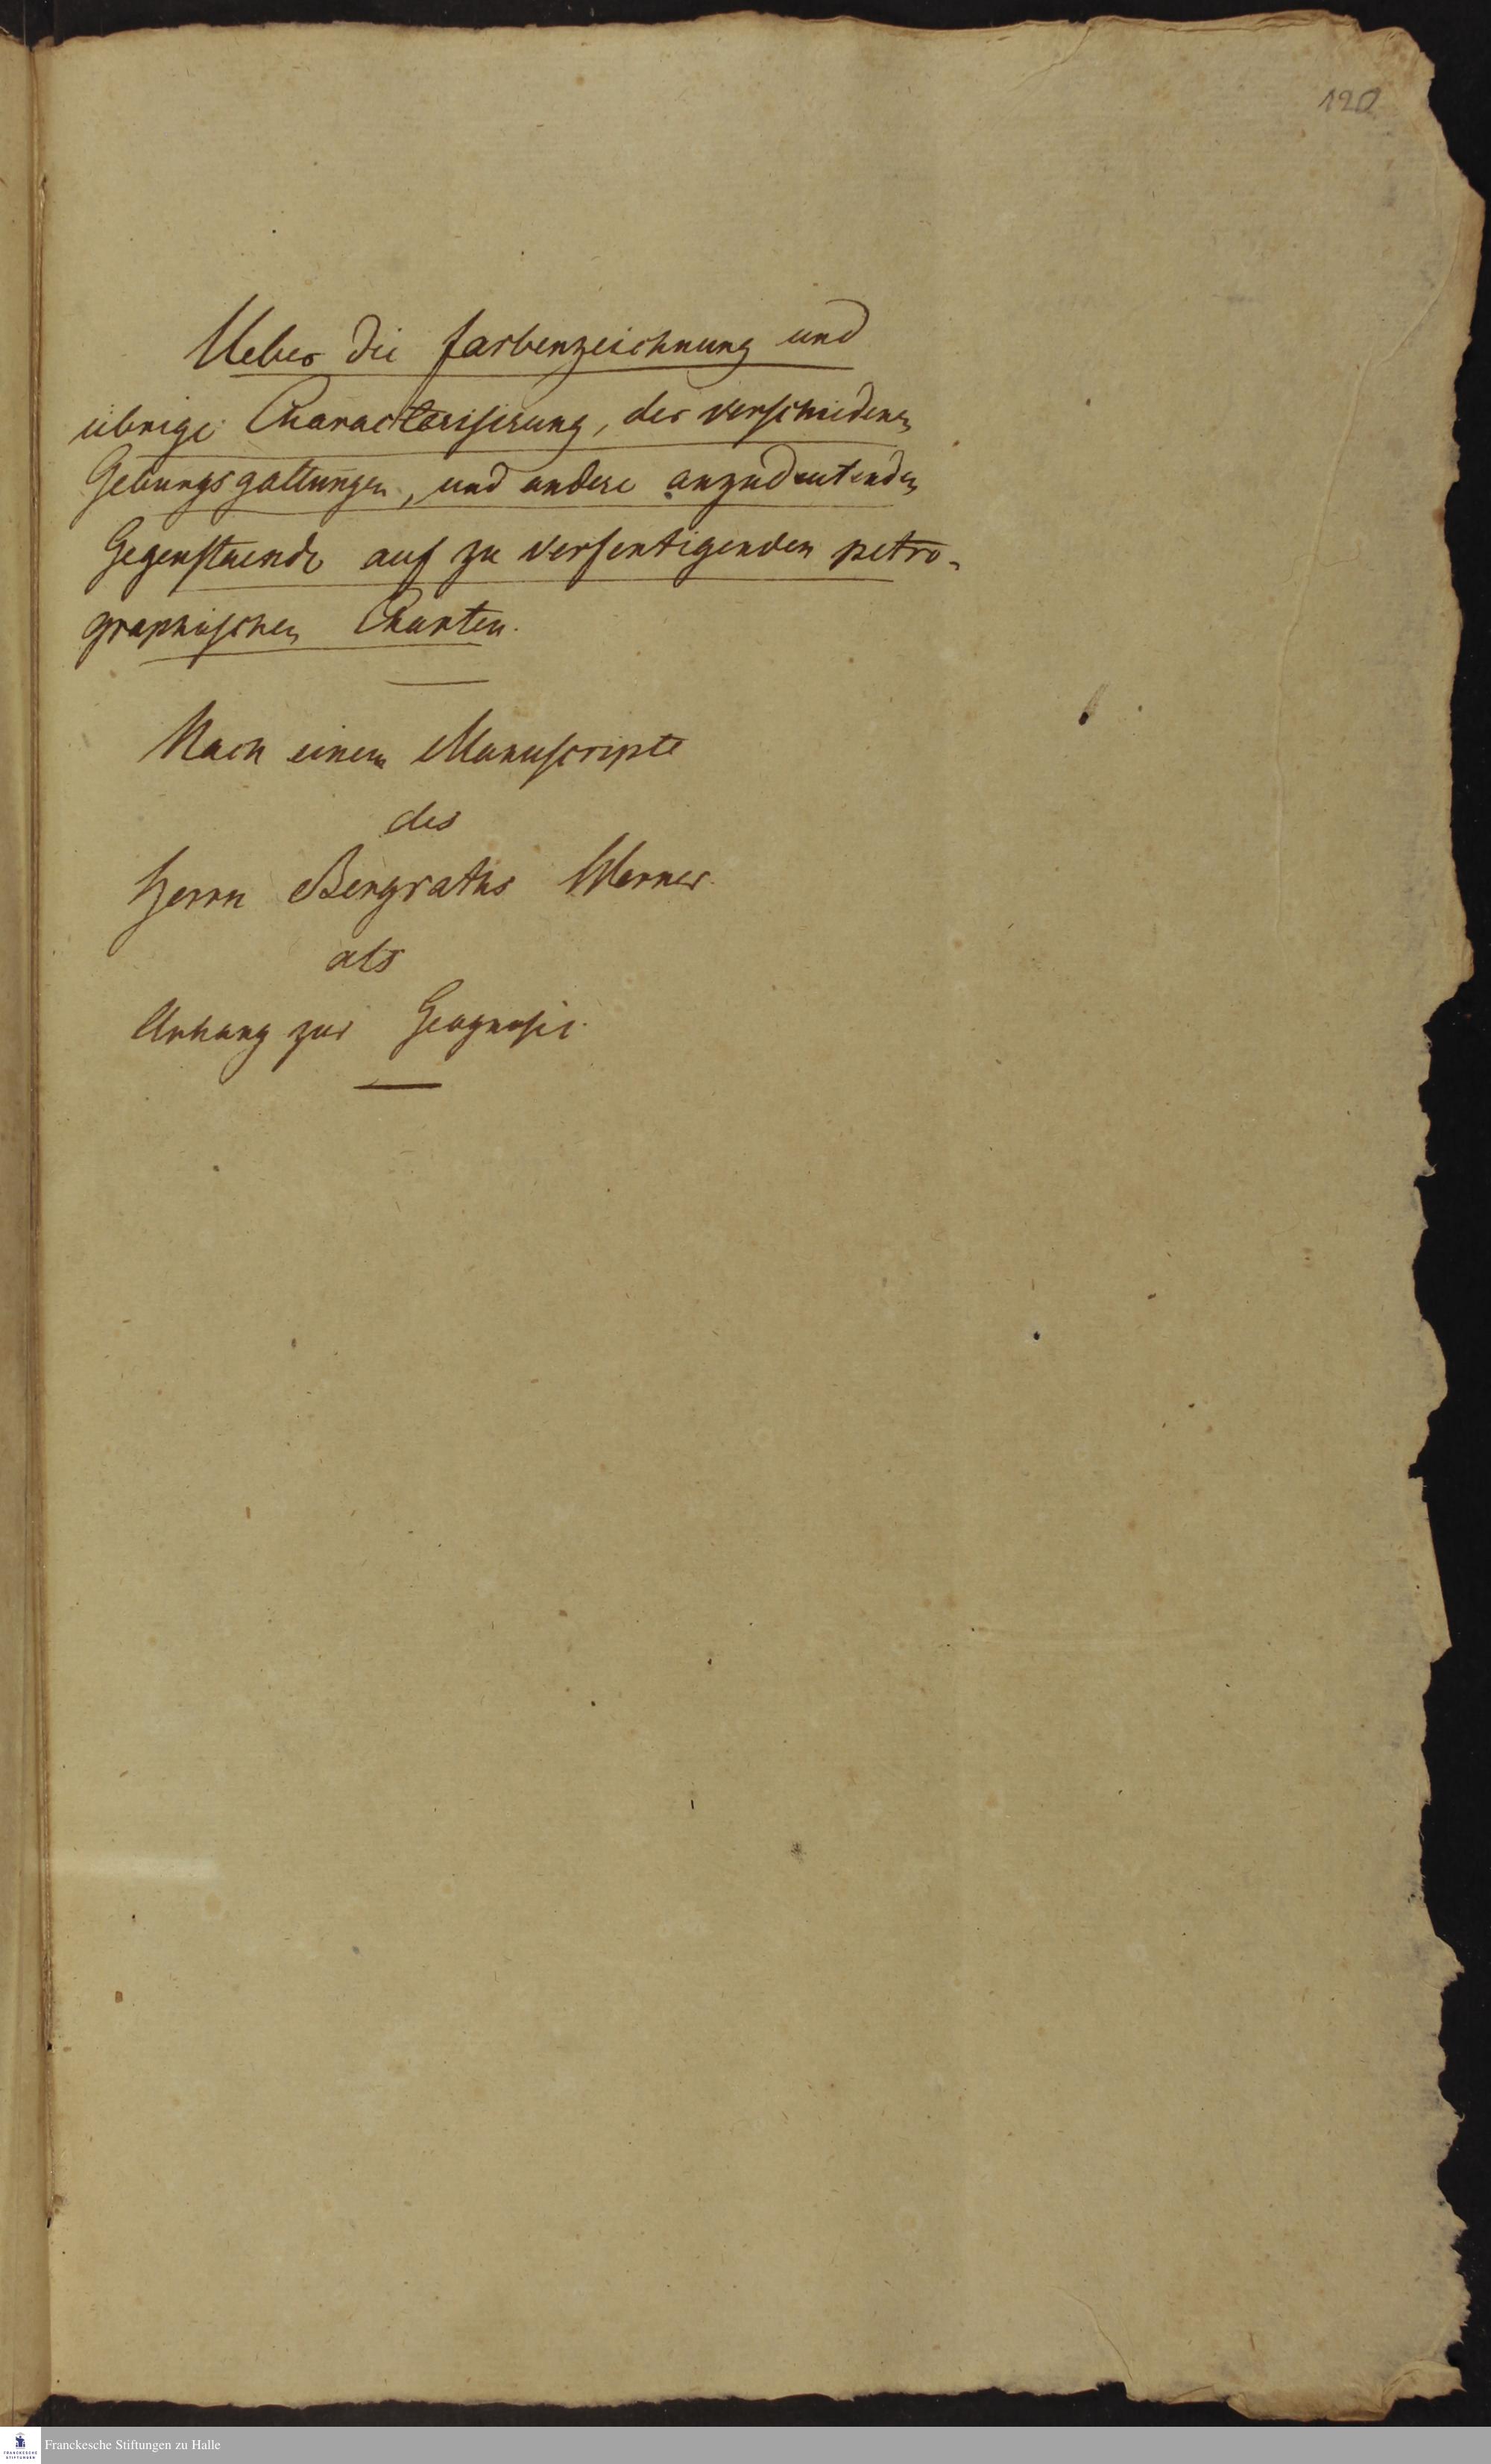 120
Ueber die farbenzeichnung und
übrige Characterisirung, der verschiedenen
Gebürgsgattungen, und andere anzudeutenden
Gegenstaende auf zu verfertigenden petro-
graphischen Charten.
Nach einem Manuscripte
des
Herrn Bergraths Werner
als
Anhang zur Geognosie.
FRANCKESCHE
STIFTUNGEN
Franckesche Stiftungen zu Halle